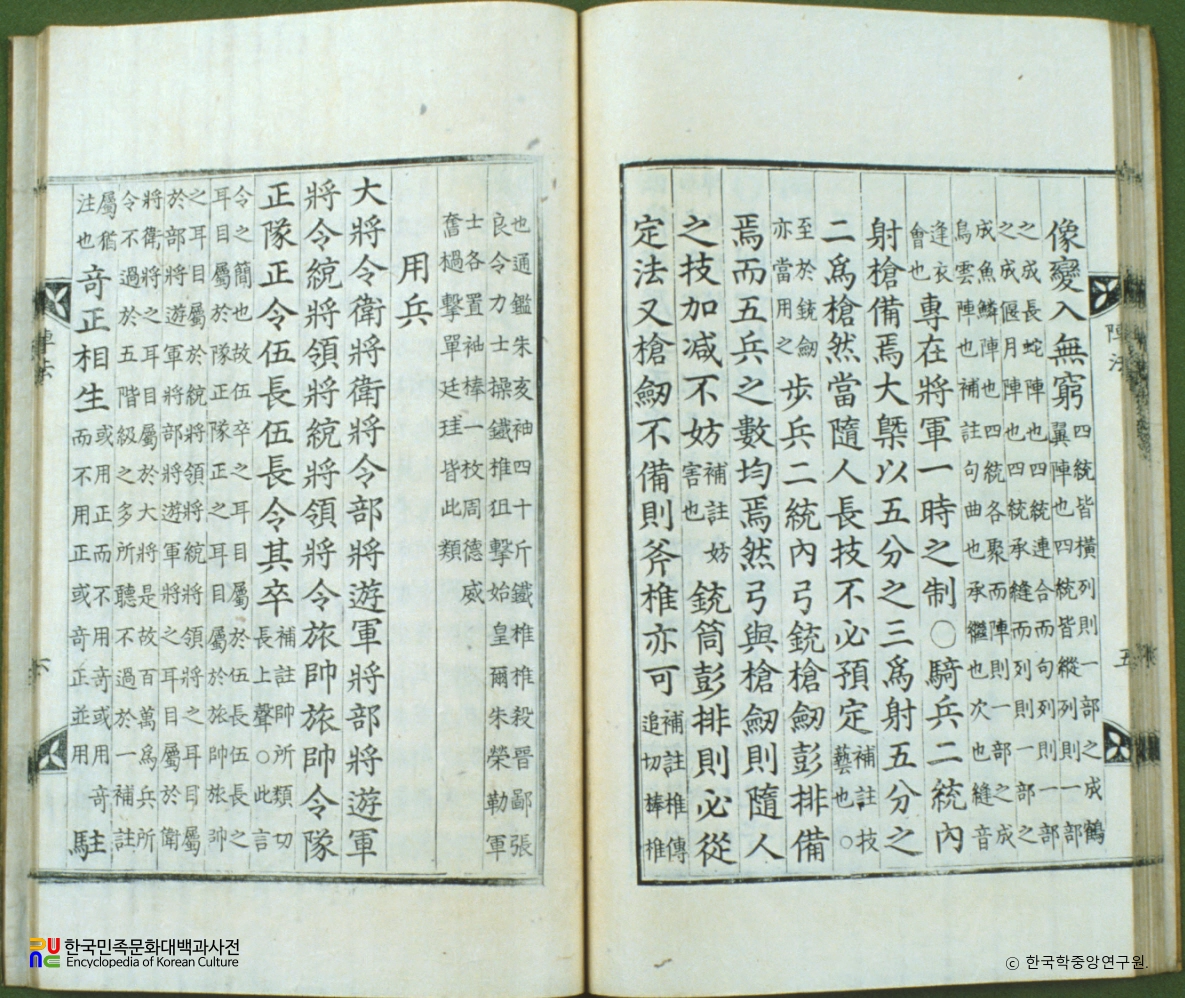 陣法
五
像變入無窮四統皆橫列則一部之成鶴
翼陣也四統皆縱列則一部
之成長蛇陣也四統連合而句列則一部
之成偃月陣也四統承縫而列則一部之
成魚鱗陣也四統各聚而陣則一部之成
烏雲陣也補註句曲也承繼也次也縫音
逢衣
會也專在將軍一時之制○騎兵二統內
射槍備焉大槩以五分之三爲射五分之
二爲槍然當隨人長技不必預定補註技
藝也○
至於銃劒
亦當用之步兵二統內弓銃槍劒彭排備
焉而五兵之數均焉然弓與槍劒則隨人
之技加減不妨補註妨
害也銃筒彭排則必從
定法又槍劒不備則斧椎亦可補註椎傳
追切棒椎
也通鑑朱亥袖四十斤鐵椎椎殺晉鄙張
良令力士操鐵椎狙擊始皇爾朱榮勒軍
士各置袖棒一枚周德威
奮檛擊單廷珪皆此類
用兵
大將令衛將衛將令部將遊軍將部將遊軍
將令統將領將統將領將令旅帥旅帥令隊
正隊正令伍長伍長令其卒補註帥所類切
長上聲○此言
令之簡也故伍卒之耳目屬於伍長伍長之
耳目屬於隊正隊正之耳目屬於旅帥旅帥
之耳目屬於統將領將統將領將之耳目屬
於部將遊軍將部將遊軍將之耳目屬於衛
將衛將之耳目屬於大將是故百萬爲兵所
令不過於五階級之多所聽不過於一補註
屬猶
注也奇正相生或用正而不用奇或用奇
而不用正或奇正並用駐
한국민족문화대백과사전
Encyclopedia of Korean Culture
ⓒ 한국학중앙연구원.